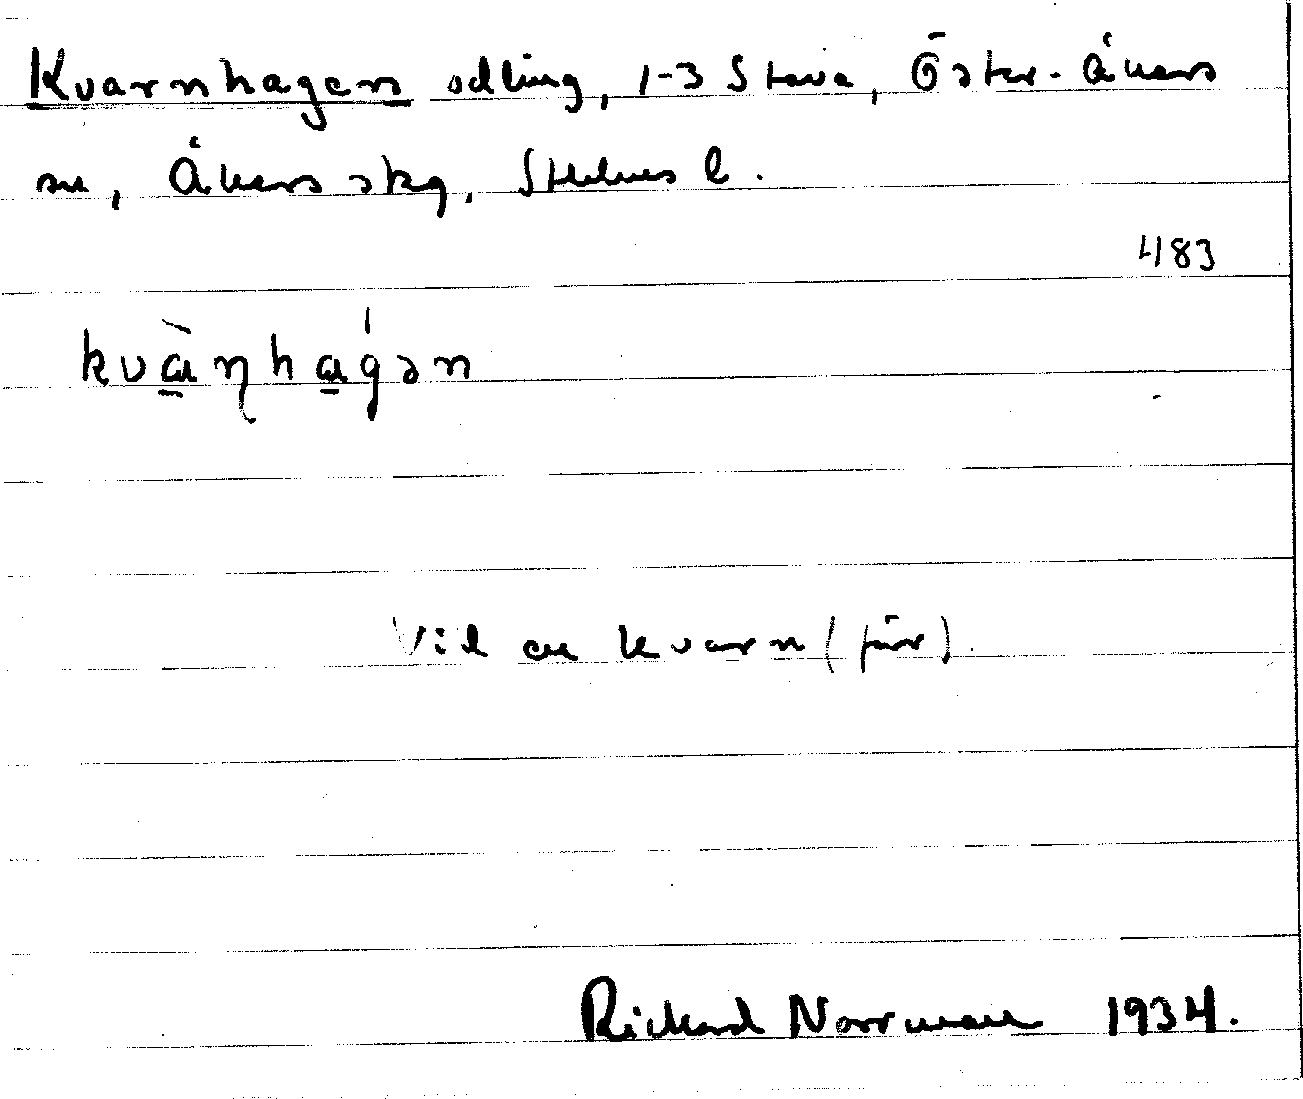 Kvarnhagen odling, 1-3 Stava, Öster-Åkers
sn, Åkers skg, Sthlms l.
483
kvὰṇhag̍ən
Vid en kvarn (förr).
Rickard Norrman 1934.